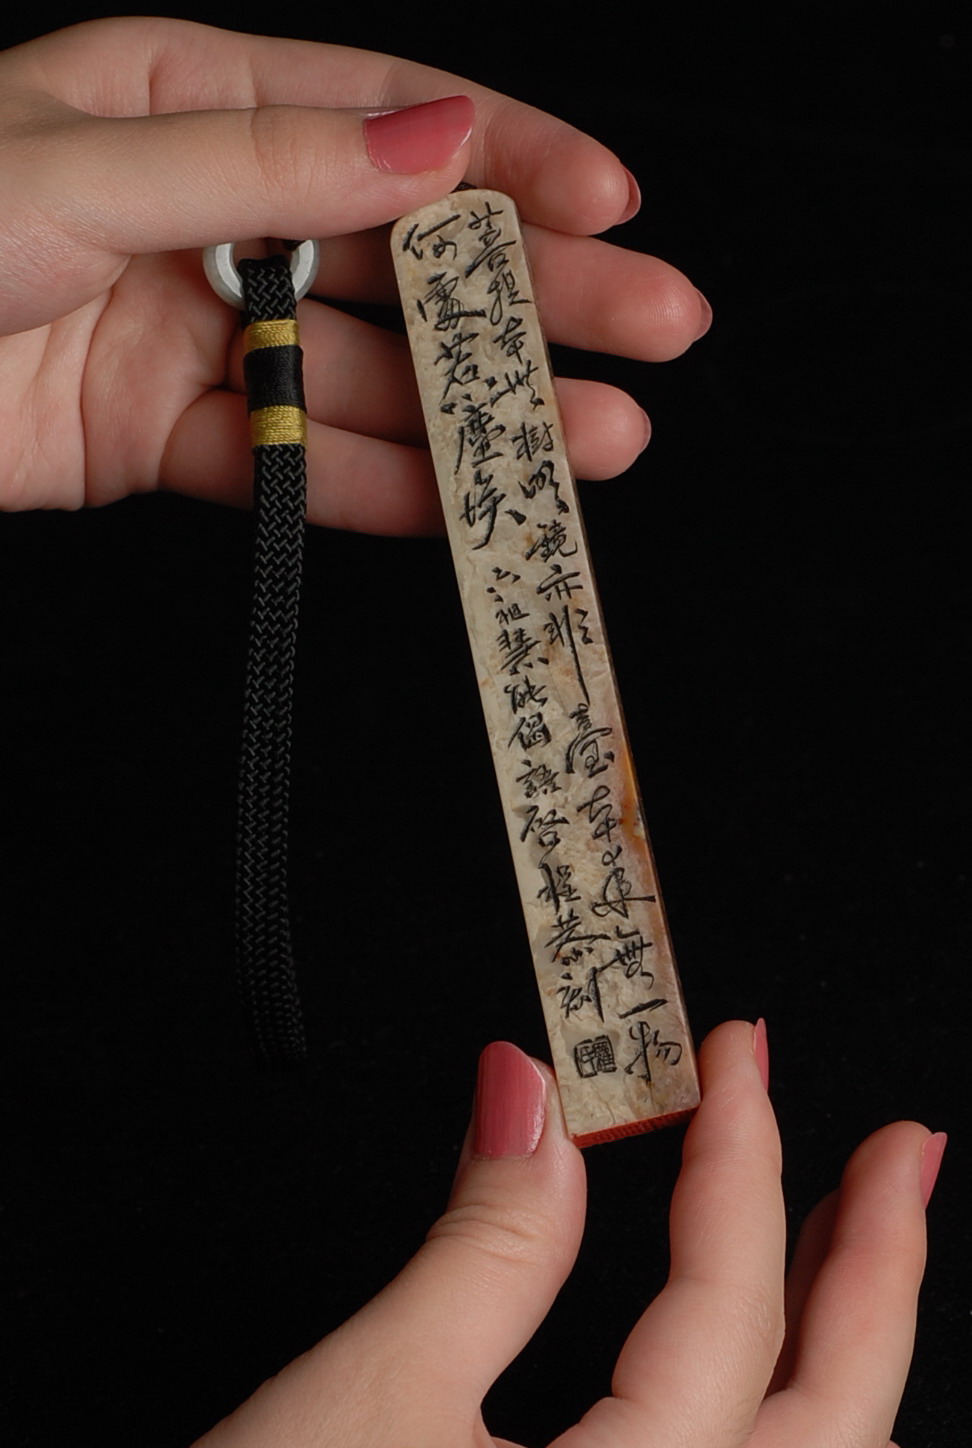 菩提本無樹明鏡亦非臺本來無一物
何處惹塵埃
六祖慧能偈語啓程恭刻